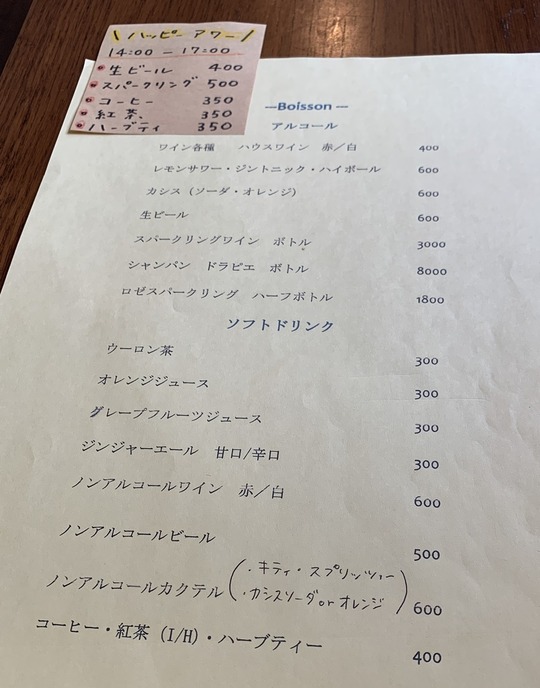 \ ハッピーアワー /
14:00 — 17:00
生ビール 400
スパークリング 500
コーヒー 350
紅茶、 350
ハーブティ 350
---Boisson ---
アルコール
ワイン各種 ハウスワイン 赤／白 400
レモンサワー・ジントニック・ハイボール 600
カシス（ソーダ・オレンジ） 600
生ビール 600
スパークリングワイン ボトル 3000
シャンパン ドラピエ ボトル 8000
ロゼスパークリング ハーフボトル 1800
ソフトドリンク
ウーロン茶 300
オレンジジュース 300
グレープフルーツジュース 300
ジンジャーエール 甘口/辛口 300
ノンアルコールワイン 赤／白 600
ノンアルコールビール 500
ノンアルコールカクテル (・キティ・スプリッツァー ・カシスソーダorオレンジ) 600
コーヒー・紅茶（I/H）・ハーブティー 400